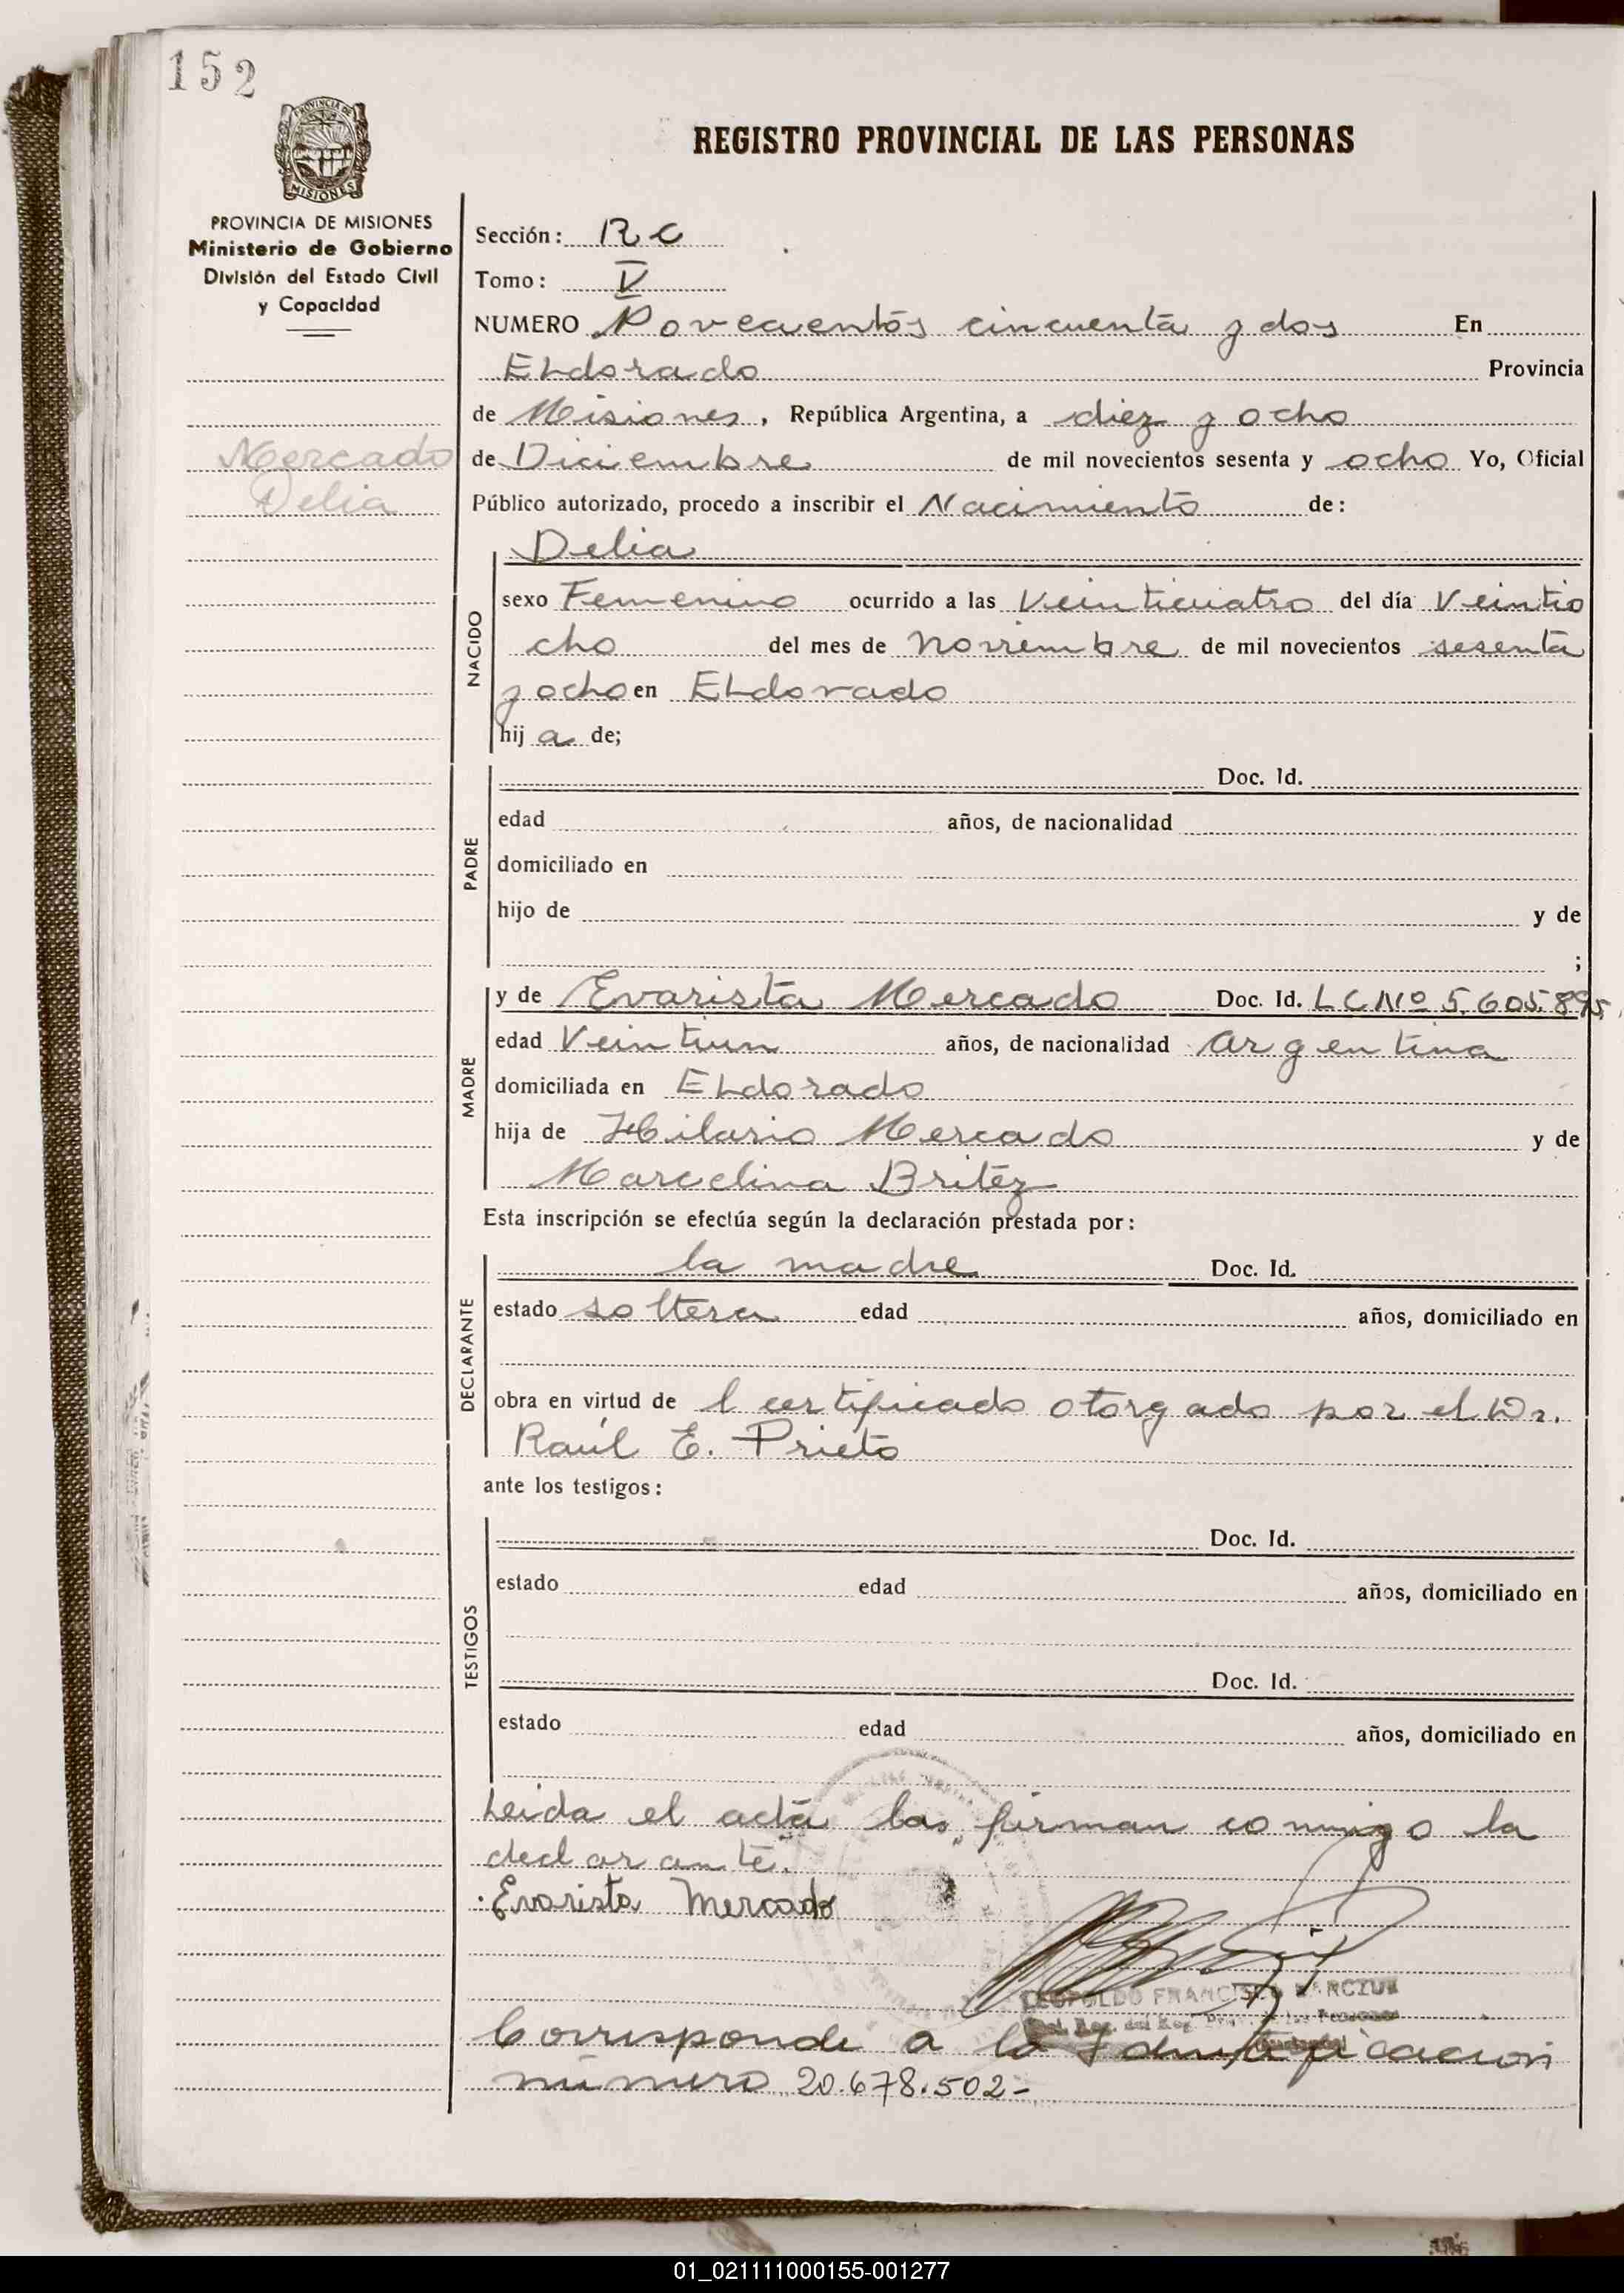 152
PROVINCIA DE
MISIONES
REGISTRO PROVINCIAL DE LAS PERSONAS
PROVINCIA DE MISIONES
Ministerio de Gobierno
División del Estado Civil
y Capacidad
Mercado
Delia
Sección: RC
Tomo: V
NUMERO Novecientos cincuenta y dos En
Eldorado Provincia
de Misiones, República Argentina, a diez y ocho
de Diciembre de mil novecientos sesenta y ocho Yo, Oficial
Público autorizado, procedo a inscribir el Nacimiento de:
NACIDO
Delia
sexo Femenino ocurrido a las Veinticuatro del día Veintio
cho del mes de noviembre de mil novecientos sesenta
y ocho en Eldorado
hij a de;
PADRE
Doc. Id.
edad años, de nacionalidad
domiciliado en
hijo de y de
;
MADRE
y de Evarista Mercado Doc. Id. LC Nº 5.605.895
edad Veintiun años, de nacionalidad argentina
domiciliada en Eldorado
hija de Hilario Mercado y de
Marcelina Britez
Esta inscripción se efectúa según la declaración prestada por:
DECLARANTE
la madre Doc. Id.
estado soltera edad años, domiciliado en
obra en virtud de l certificado otorgado por el Dr.
Raúl E. Prieto
ante los testigos:
TESTIGOS
Doc. Id.
estado edad años, domiciliado en
Doc. Id.
estado edad años, domiciliado en
Leida el acta las firman conmigo la
declarante.
Evarista Mercado
LEOPOLDO FRANCISCO
Corresponde a la Identificacion
número 20.678.502-
01_021111000155-001277